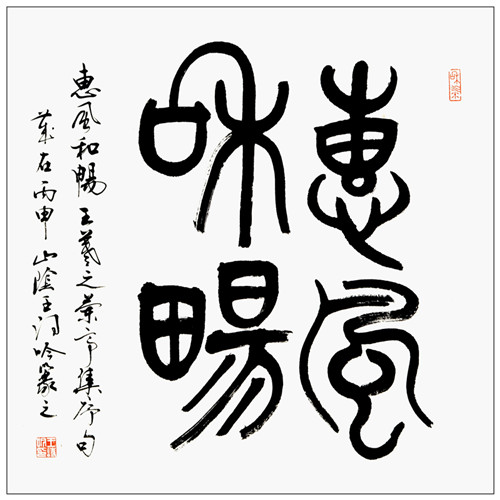 惠風
和暢
惠風和暢 王羲之蘭亭集序句
歲在丙申 山陰王吟篆之